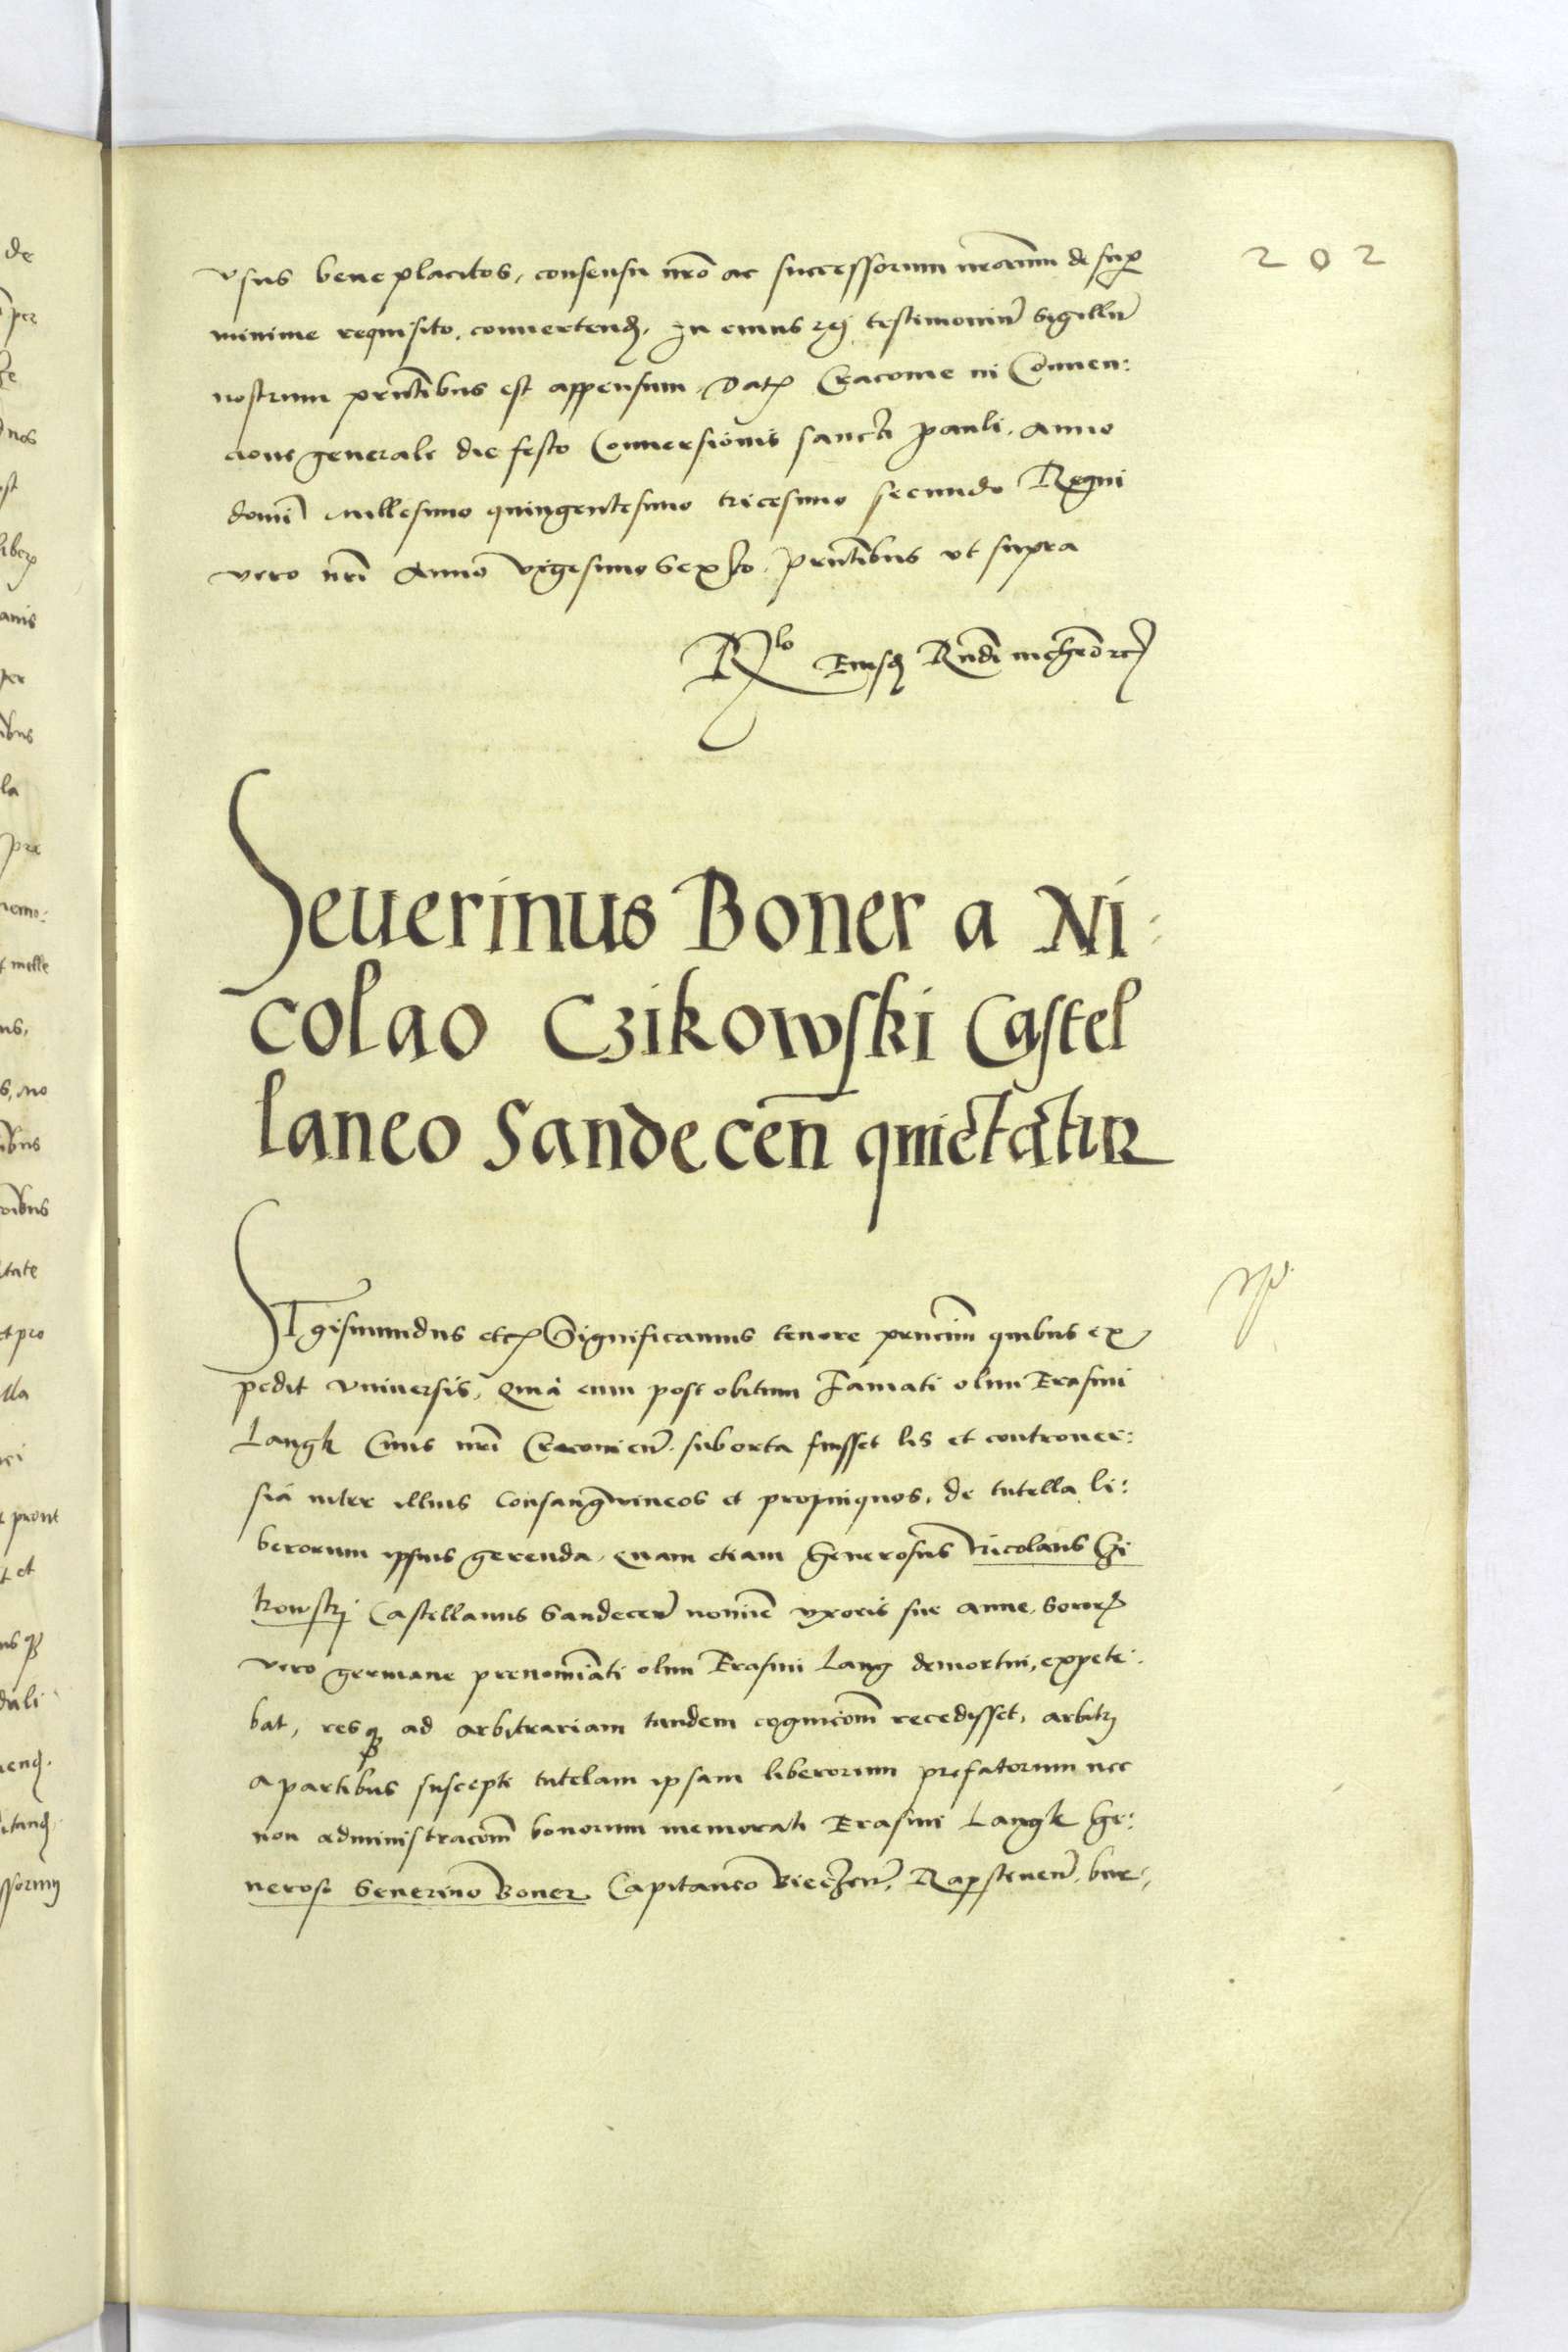 202
vsus bene placitos, consensu nro ac successorum nrorum de sup
minime requisito. conuertend. In cuius rei testimoniu Sigillu
nostrum prntibus est appensum. Dat Cracouie in Conuen:
cione generale die festo Conuersionis sancti Pauli. Anno
domi millesimo quingentesimo tricesimo secundo Regni
vero nri Anno vigesimo Sexto. prntibus vt supra
Rlo Eiusd Rndi
Seuerinus Boner a Ni:
colao Czikowski Castel
laneo Sandecen quietatur
SIgismundus etc Significamus tenore prncium quibus ex
pedit vniuersis, Quia cum post obitum Famati olim Erasmi
Langk Ciuis nri Cracouien. suborta fuisset lis et controuer:
sia inter illius Consangwineos et propinquos, de tutella li:
berorum ipsius gerenda. quam etiam Generosus Nicolaus
Castellanus Sandecen nomie vxoris sue Anne, Soror
vero germane prenomiati olim Erasmi Lang demortui, expete:
bat, resq ad arbitrariam tandem cognicom recedisset, arbitri
a partibus suscepti tutelam ipsam liberorum prefatorum nec
non administracom bonorum memorati Erasmi Langk Ge:
neroso Seuerino Boner Capitaneo Biecen, Rapstenen. bur: